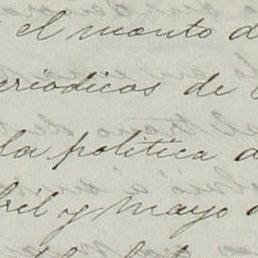 el monto d
eriodicos de
la politica d
bril y mayo d